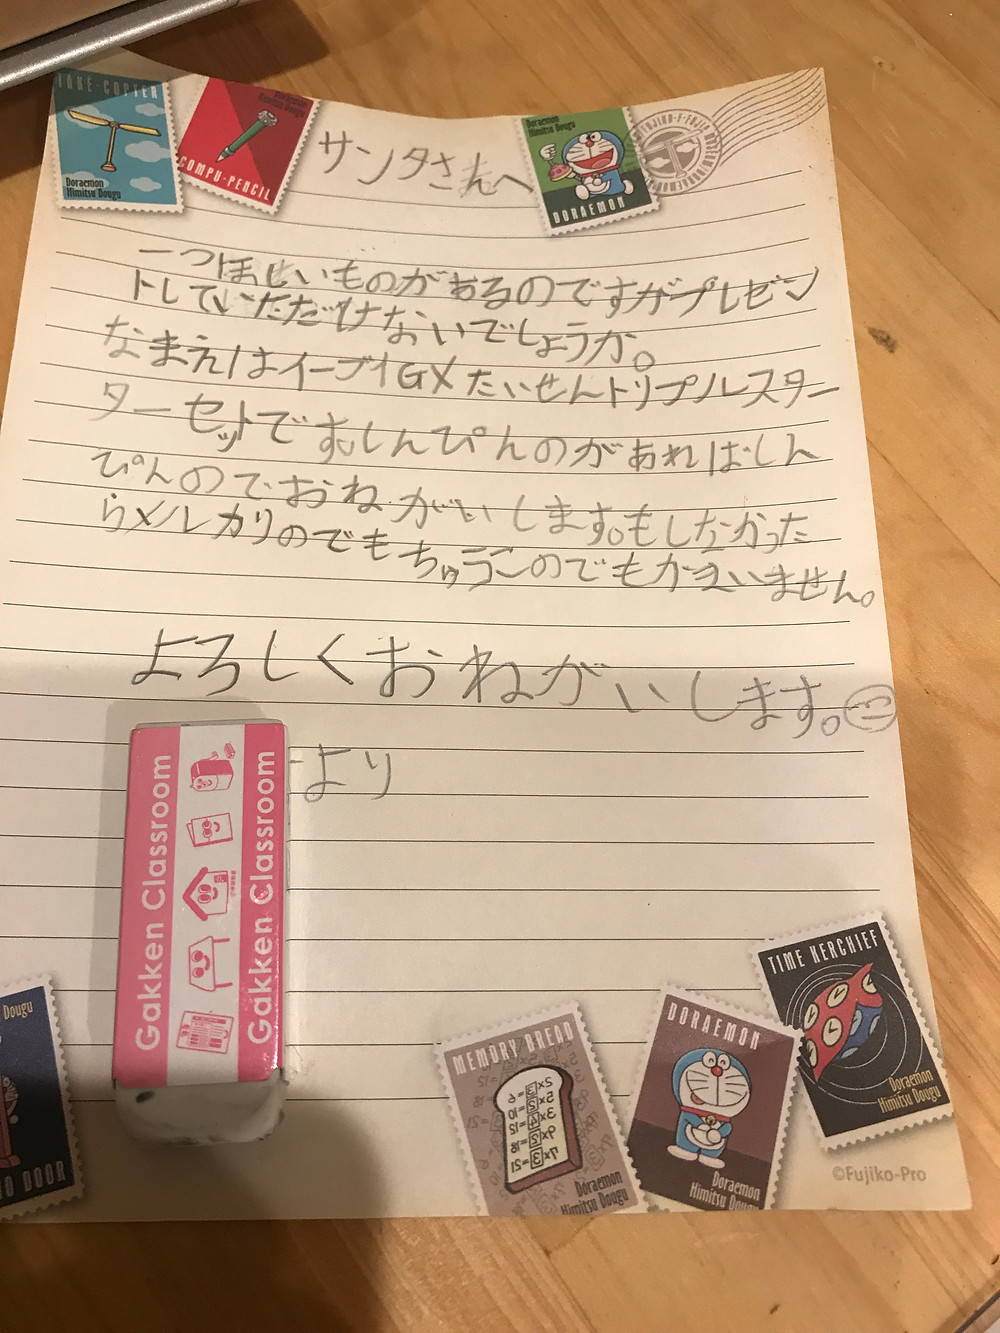 TAKE-COPTER
Doraemon
Himitsu Dougu
COMPU-PENCIL
サンタさんへ
Doraemon
Himitsu Dougu
DORAEMON
一つほしいものがあるのですがプレゼン
トしていただけないでしょうか。
なまえはイーブイGXたいせんトリプルスター
ターセットですしんぴんのがあればしん
ぴんのでおねがいします。もしなかった
らメルカリのでもちゅうこのでもかまいません。
よろしくおねがいします。
より
Gakken Classroom
Gakken Classroom
Dougu
DOOR
MEMORY BREAD
Doraemon
Himitsu Dougu
DORAEMON
Doraemon
Himitsu Dougu
TIME KERCHIEF
Doraemon
Himitsu Dougu
©Fujiko-Pro